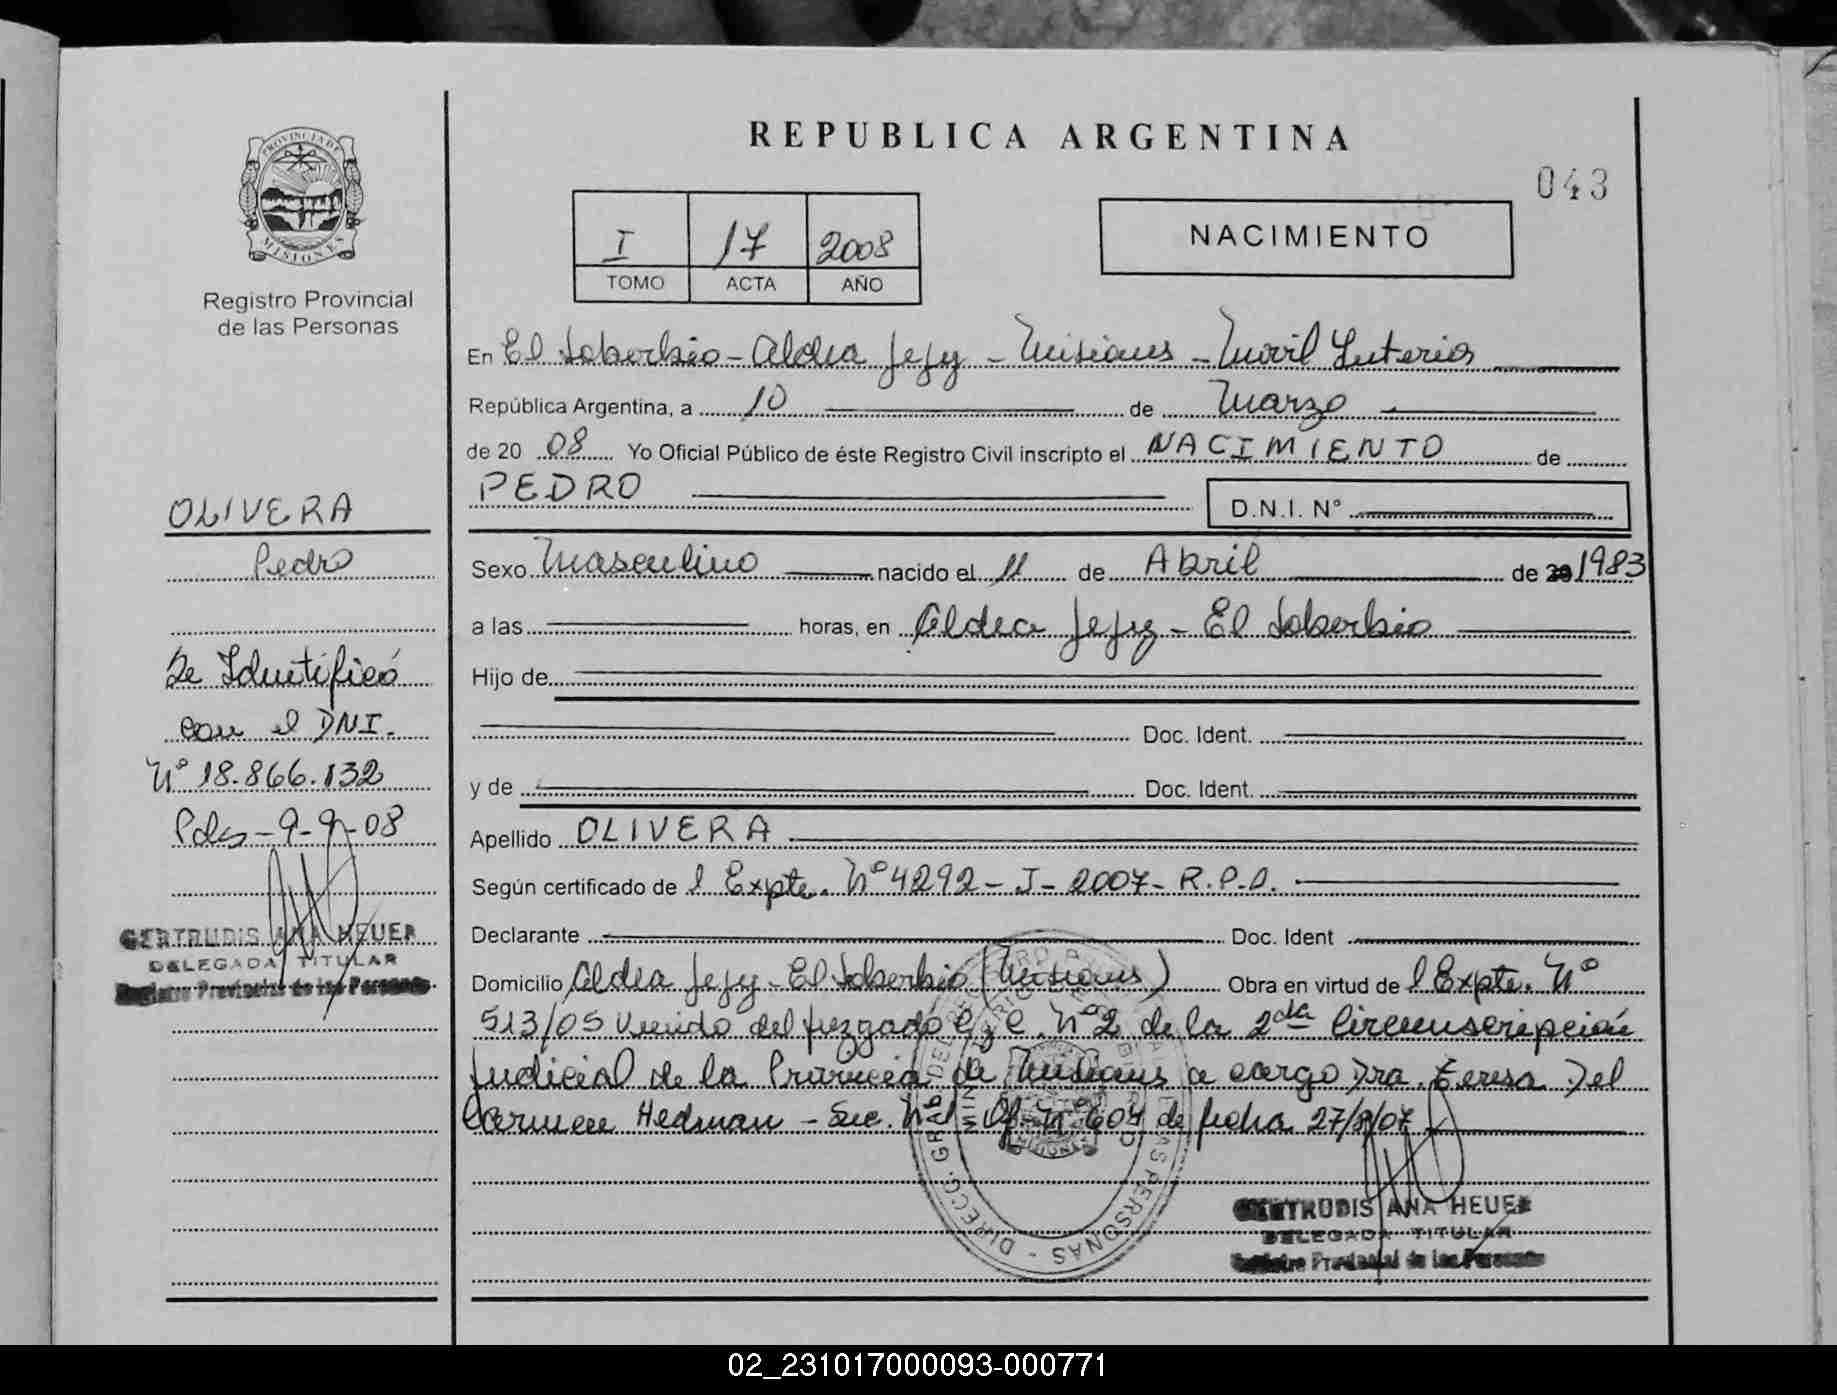 REPUBLICA ARGENTINA
043
PROVINCIA DE
MISIONES
Registro Provincial
de las Personas
I 17 2008
TOMO ACTA AÑO
NACIMIENTO
En El Soberbio - Aldea Jejy - Misiones - Movil Interior
República Argentina, a 10 de Marzo
de 20 08 Yo Oficial Público de éste Registro Civil inscripto el NACIMIENTO de
PEDRO D.N.I. N°
Sexo Masculino nacido el 11 de Abril de 20 1983
a las horas, en Aldea Jejy - El Soberbio
Hijo de
Doc. Ident.
y de Doc. Ident.
Apellido OLIVERA
Según certificado de l Expte. N° 4292 - J - 2007 - R.P.P.
Declarante Doc. Ident
Domicilio Aldea Jejy - El Soberbio (Misiones) Obra en virtud de l Expte. N°
513/05 Venido del Juzgado C y C N° 2 de la 2da Circunscripción
Judicial de la Provincia de Misiones a cargo Dra. Teresa Del
Carmen Hedman - Sec. N° 1 Of. N° 604 de fecha 27/8/07
GERTRUDIS ANA HEUER
DELEGADA TITULAR
Registro Provincial de las Personas
OLIVERA
Pedro
Se Identificó
con el DNI.
N° 18.866.132
Pdas - 9-9-08
GERTRUDIS ANA HEUER
DELEGADA TITULAR
Registro Provincial de las Personas
02_231017000093-000771